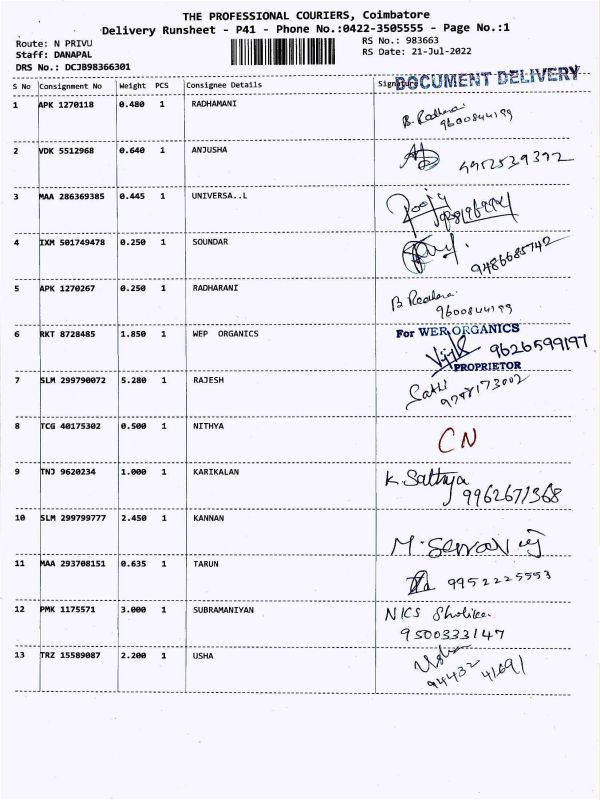 THE PROFESSIONAL COURIERS, Coimbatore
Delivery Runsheet - P41 - Phone No.:0422-3505555 - Page No.:1
Route: N PRIVU
RS No.: 983663
Staff: DANAPAL
RS Date: 21-Jul-2022
DRS No.: DCJB98366301
DOCUMENT DELIVERY
S No Consignment No Weight PCS Consignee Details Signature
1 APK 1270118 0.480 1 RADHAMANI
9600844199
2 VDK 5512968 0.640 1 ANJUSHA
3 MAA 286369385 0.445 1 UNIVERSA..L
4 IXM 501749478 0.250 1 SOUNDAR
9486685742
5 APK 1270267 0.250 1 RADHARANI
9600844199
6 RKT 8728485 1.850 1 WEP ORGANICS
For WER ORGANICS
9626599197
PROPRIETOR
7 SLM 299790072 5.280 1 RAJESH
8 TCG 40175302 0.500 1 NITHYA
CN
9 TNJ 9620234 1.000 1 KARIKALAN
K. Sathya
9962671368
10 SLM 299799777 2.450 1 KANNAN
11 MAA 293708151 0.635 1 TARUN
9952225553
12 PMK 1175571 3.000 1 SUBRAMANIYAN
NKS
9500333147
13 TRZ 15589087 2.200 1 USHA
Usha
94432 41691